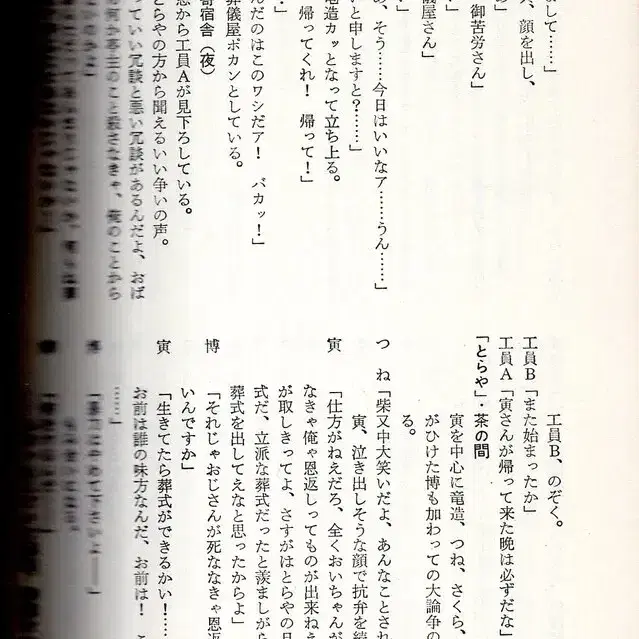 まして……」
、顔を出し、
御苦労さん」
儀屋さん」
あ、そう……今日はいいなア……うん……」
いと申しますと？……」
竜造カッとなって立ち上る。
帰ってくれ！　帰って！」
んだのはこのワシだア！　バカッ！」
葬儀屋ポカンとしている。
寄宿舎（夜）
窓から工員Aが見下ろしている。
とらやの方から聞えるいい争いの声。
っていい冗談と悪い冗談があるんだよ、おば
殺さなきゃ、俺のことから
工員B、のぞく。
工員B「また始まったか」
工員A「寅さんが帰って来た晩は必ずだな」
「とらや」・茶の間
寅を中心に竜造、つね、さくら、
がひけた博も加わっての大論争の
る。
つね「柴又中大笑いだよ、あんなことされ
寅、泣き出しそうな顔で抗弁を続
寅「仕方がねえだろ、全くおいちゃんが
なきゃ俺ゃ恩返しってものが出来ねえ
が取しきってよ、さすがはとらやの
式だ、立派な葬式だったと羨ましがら
葬式を出してえなと思ったからよ」
博「それじゃおじさんが死ななきゃ恩返
いんですか」
寅「生きてたら葬式ができるかい！……
お前は誰の味方なんだ、お前は！
……」
博「暴力はやめて下さいよ――」